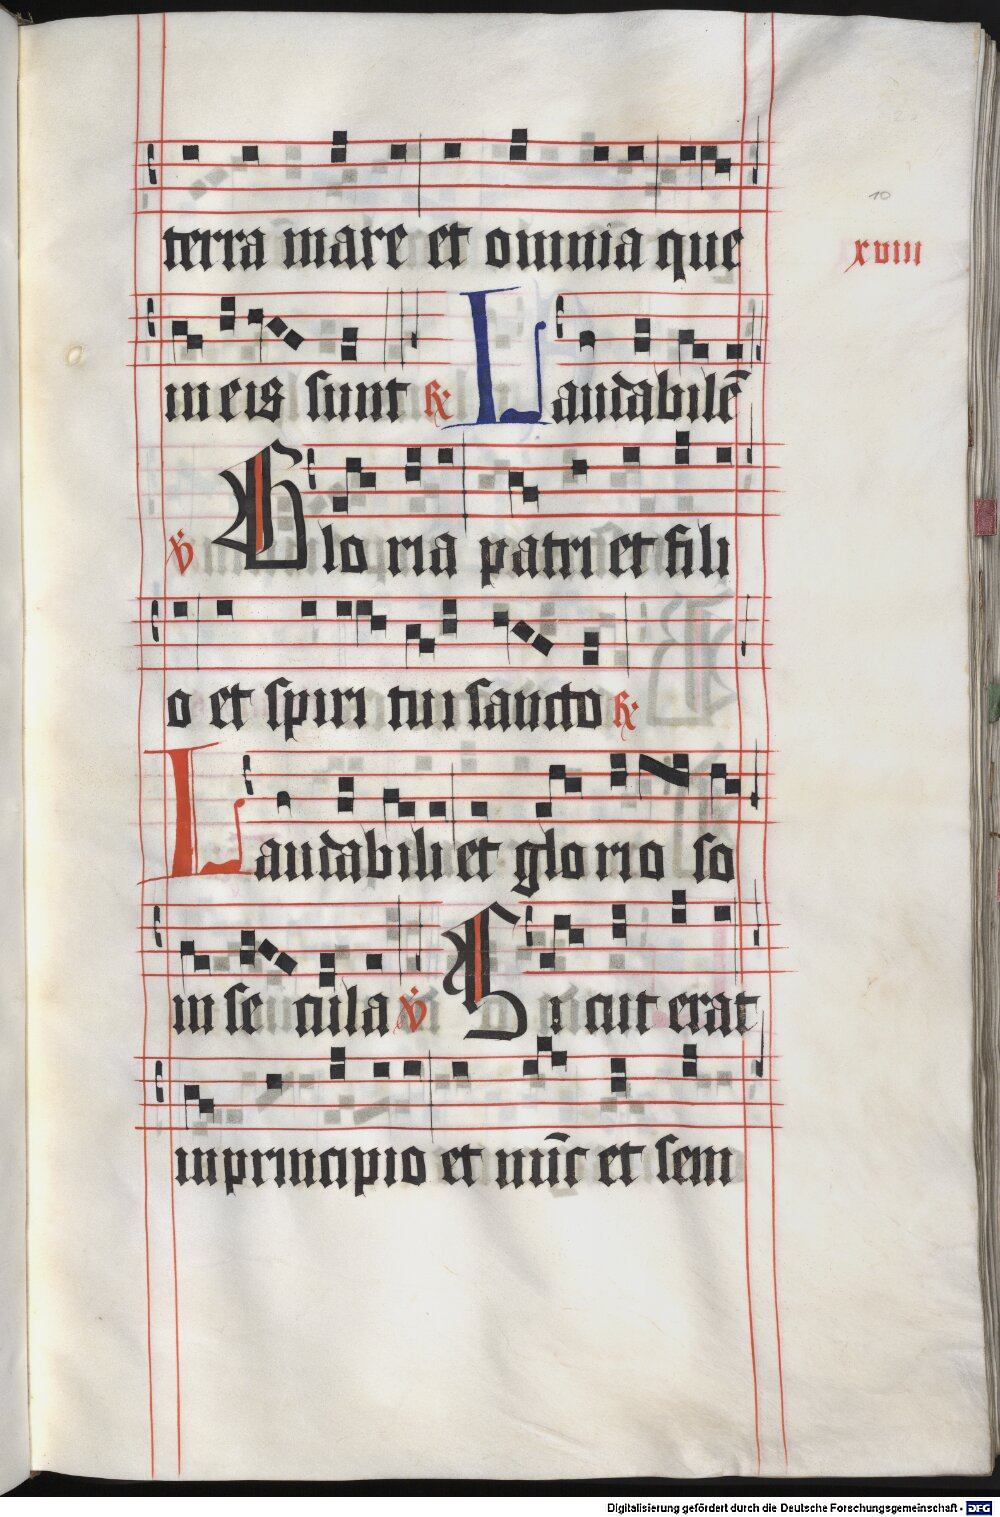 10
terra mare et omnia que
xviii
in eis sunt ℟ Laudabilē
℣ Glo ria patri et fili
o et spiri tui sancto ℟
Laudabili et glo rio so
in se cula ℣ Si cut erat
in principio et nūc et sem
Digitalisierung gefördert durch die Deutsche Forschungsgemeinschaft - DFG